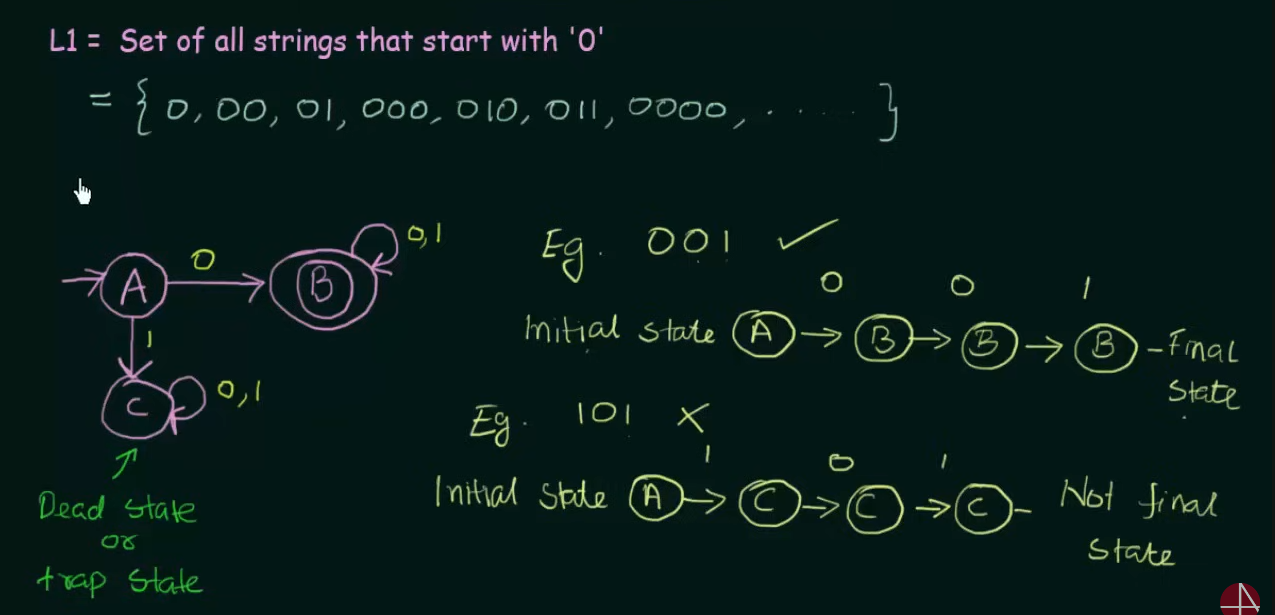 L1 = Set of all strings that start with '0'
= { 0, 00, 01, 000, 010, 011, 0000, . . . . . . }
A
0
B
0,1
1
C
0,1
Dead State
or
trap State
Eg. 001 ✓
0 0 1
Initial state A → B → B → B - Final
State
Eg. 101 ✗
1 0 1
Initial state A → C → C → C - Not final
State